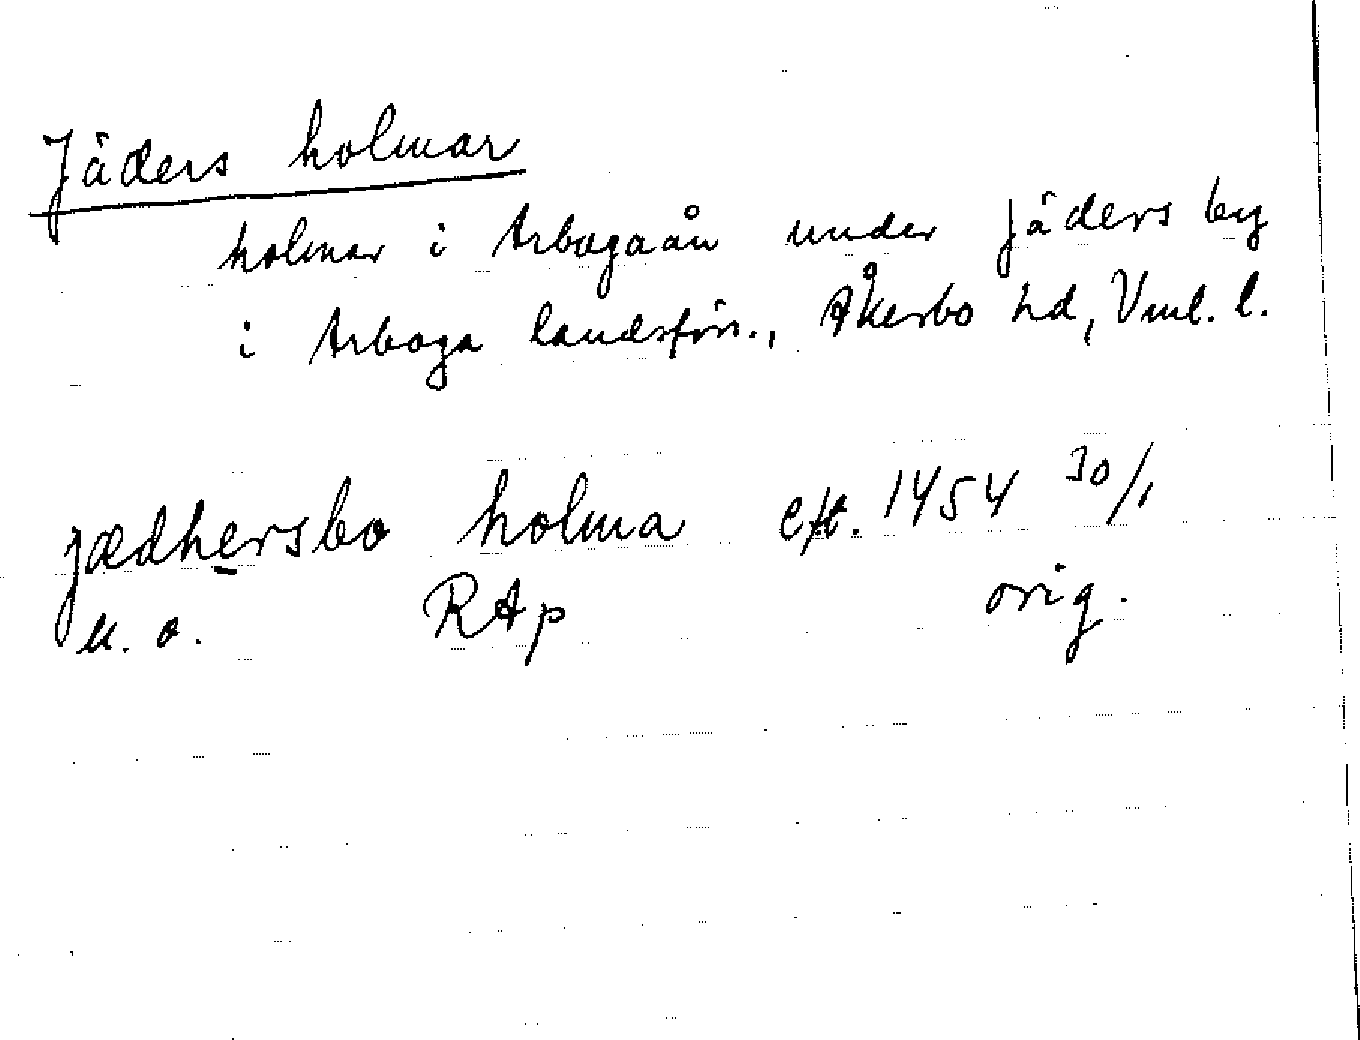 Jäders holmar
holmar i Arbogaån under Jäders by
i Arboga landsförs., Åkerbo hd, Vml. l.
jædhersbo holma eft. 1454 30/1
u. o. RAp orig.